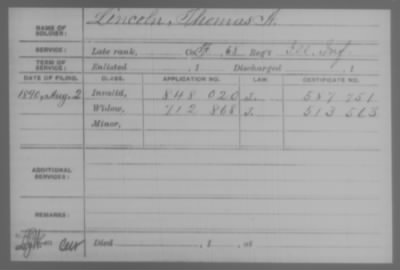 NAME OF SOLDIER: Lincoln, Thomas A.
SERVICE: Late rank, Co. 68 Reg't Ill. Inf.
TERM OF SERVICE: Enlisted , 1 Discharged , 1
DATE OF FILING. CLASS. APPLICATION NO. LAW. CERTIFICATE NO.
1890, Aug. 2 Invalid, 848 020 587 751
Widow, 712 868 513 503
Minor,
ADDITIONAL SERVICES:
REMARKS:
Died , 1 , at